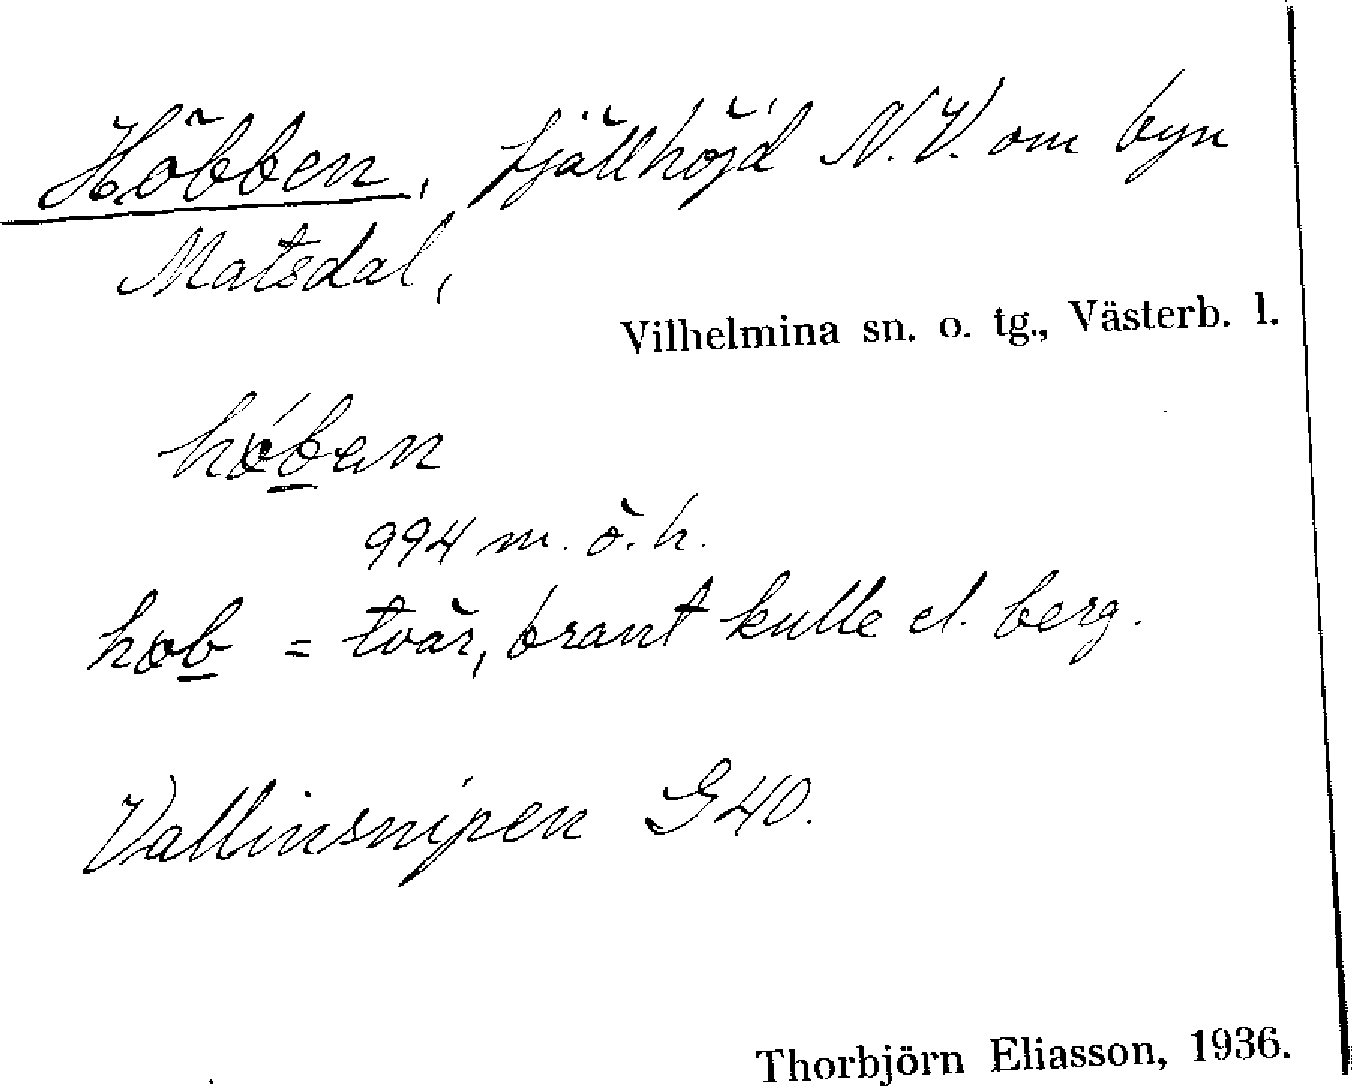 Höbben, fjällhöjd N.V. om byn
Matsdal,
Vilhelmina sn. o. tg., Västerb. l.
994 m. ö. h.
= tvär, brant kulle el. berg.
Vallinsnipen G40.
Thorbjörn Eliasson, 1936.